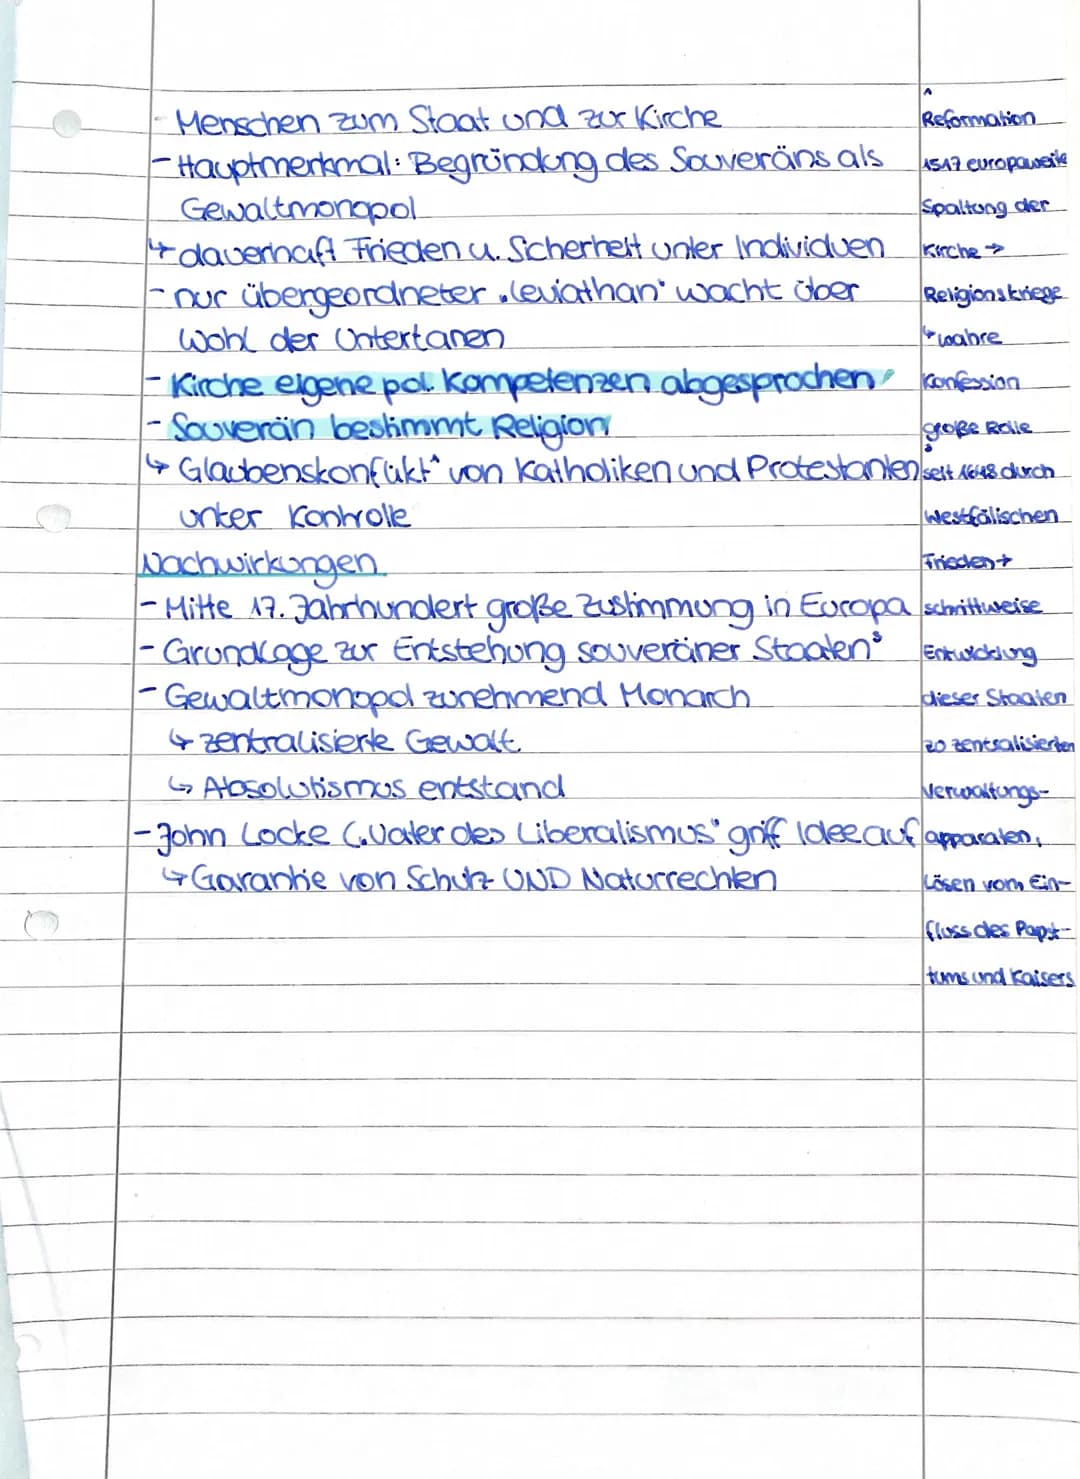 - Menschen zum Staat und zur Kirche
- Hauptmerkmal: Begründung des Souveräns als
Gewaltmonopol
↳ dauerhaft Frieden u. Sicherheit unter Individuen
- nur übergeordneter „Leviathan" wacht über
Wohl der Untertanen
- Kirche eigene pol. Kompetenzen abgesprochen
- Souverän bestimmt Religion
↳ Glaubenskonflikt^ von Katholiken und Protestanten
unter Kontrolle
Nachwirkungen
- Mitte 17. Jahrhundert große Zustimmung in Europa
- Grundlage zur Entstehung souveräner Staaten³
- Gewaltmonopol zunehmend Monarch
↳ zentralisierte Gewalt
↳ Absolutismus entstand
- John Locke („Vater des Liberalismus" griff Idee auf
↳ Garantie von Schutz UND Naturrechten
^
Reformation
1517 europaweite
Spaltung der
Kirche →
Religionskriege
↳ wahre
Konfession
große Rolle
³
seit 1648 durch
Westfälischen
Frieden +
schrittweise
Entwicklung
dieser Staaten
zo zentralisierten
Verwaltungs-
apparaten,
Lösen vom Ein-
fluss des Papst-
tums und Kaisers